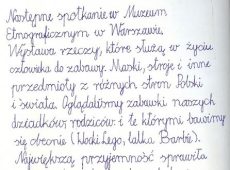 Następne spotkanie w Muzeum
Etnograficznym w Warszawie.
Wystawa rzeczy, które służą w życiu
człowieka do zabawy. Maski, stroje i inne
przedmioty z różnych stron Polski
i świata. Oglądaliśmy zabawki naszych
dziadków, rodziców i te którymi bawimy
się obecnie (klocki Lego, lalka Barbie).
Największą przyjemność sprawiła